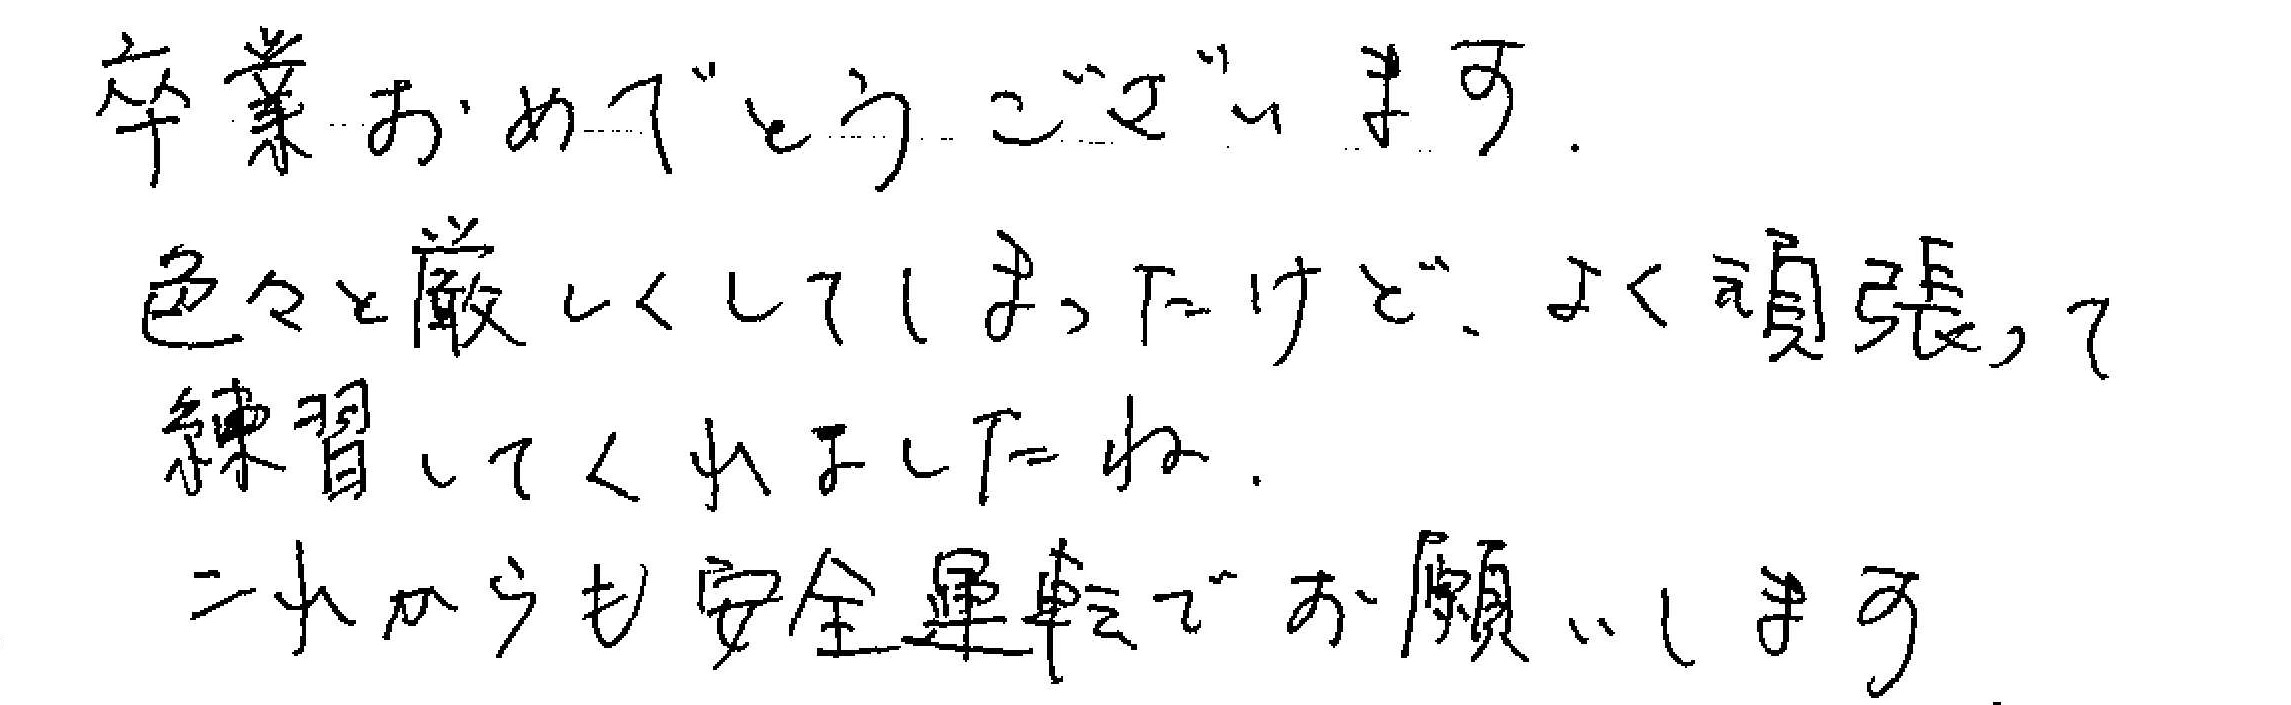 卒業おめでとうございます.
色々と厳しくしてしまったけど、よく頑張って
練習してくれましたね.
これからも安全運転でお願いします.